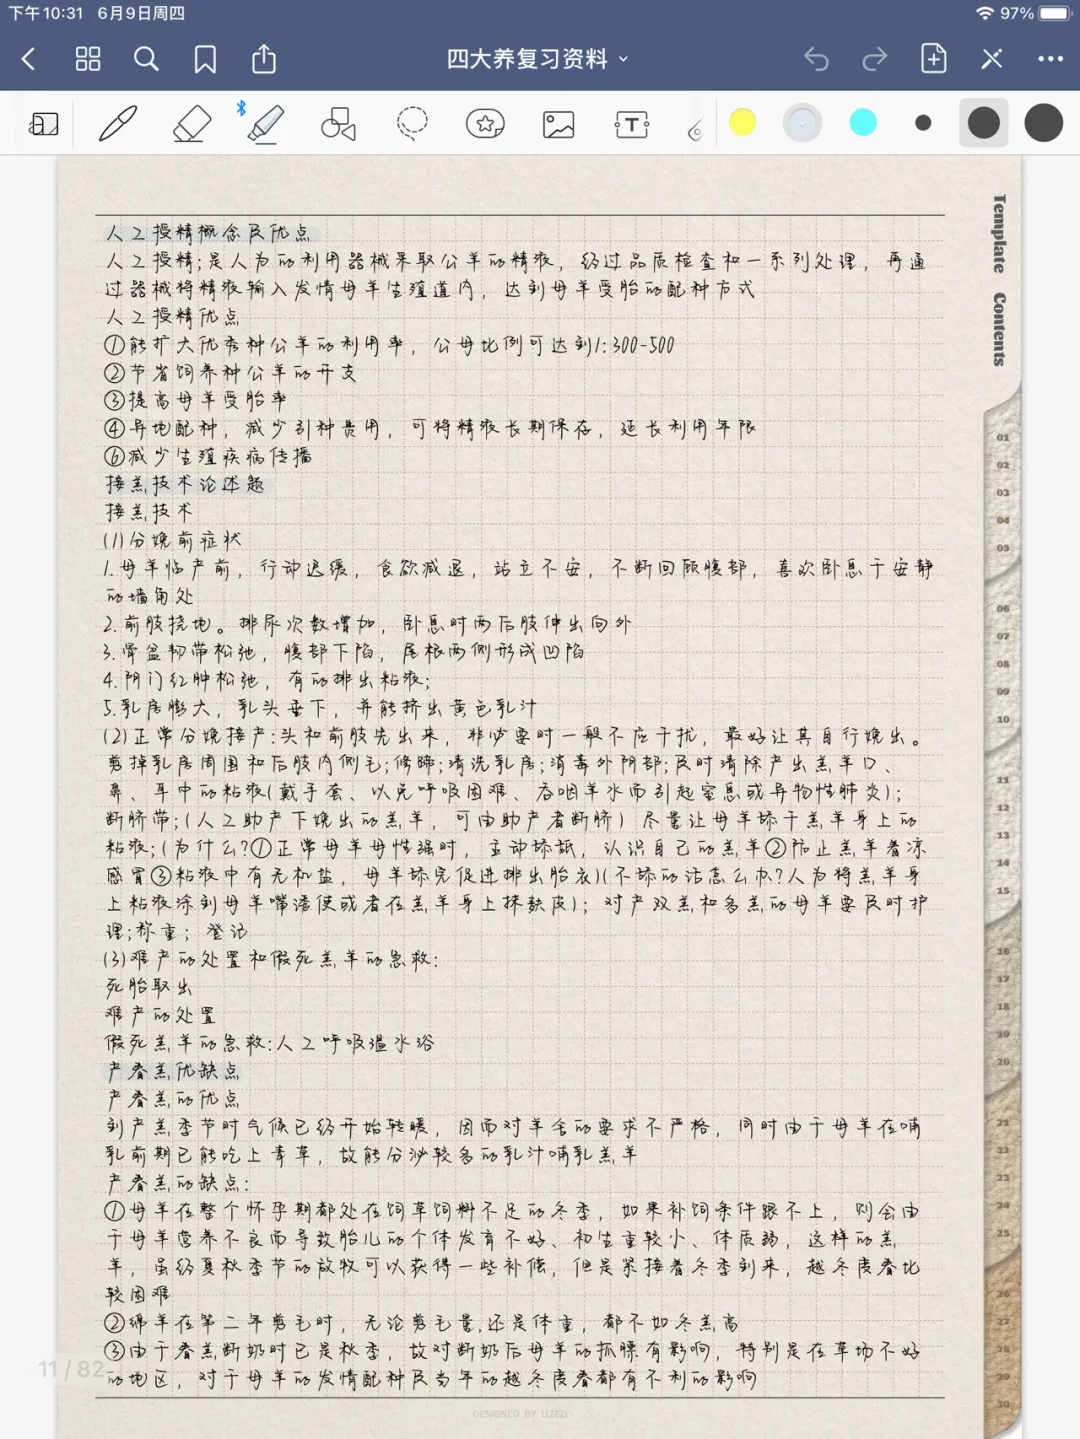 下午10:31 6月9日周四
97%
四大养复习资料
T
Template Contents
人工授精概念及优点
人工授精;是人为的利用器械采取公羊的精液，经过品质检查和一系列处理，再通
过器械将精液输入发情母羊生殖道内，达到母羊受胎的配种方式
人工授精优点
①能扩大优秀种公羊的利用率，公母比例可达到1:300-500
②节省饲养种公羊的开支
③提高母羊受胎率
④异地配种，减少引种费用，可将精液长期保存，延长利用年限
⑥减少生殖疾病传播
接羔技术论述题
接羔技术
(1)分娩前症状
1.母羊临产前，行动迟缓，食欲减退，站立不安，不断回顾腹部，喜欢卧息于安静
的墙角处
2.前肢挠地。排尿次数增加，卧息时两后肢伸出向外
3.骨盆韧带松弛，腹部下陷，尾根两侧形成凹陷
4.阴门红肿松弛，有的排出粘液;
5.乳房膨大，乳头垂下，并能挤出黄色乳汁
(2)正常分娩接产:头和前肢先出来，非必要时一般不应干扰，最好让其自行娩出。
剪掉乳房周围和后肢内侧毛;修蹄;清洗乳房;消毒外阴部;及时清除产出羔羊口、
鼻、耳中的粘液(戴手套、以免呼吸困难、吞咽羊水而引起窒息或异物性肺炎);
断脐带;(人工助产下娩出的羔羊，可由助产者断脐)尽量让母羊舔干羔羊身上的
粘液;(为什么?①正常母羊母性强时，主动舔舐，认识自己的羔羊②防止羔羊着凉
感冒③粘液中有无机盐，母羊舔完促进排出胎衣)(不舔的话怎么办?人为将羔羊身
上粘液涂到母羊嘴诱使或者在羔羊身上抹麸皮);对产双羔和多羔的母羊要及时护
理;称重;登记
(3)难产的处置和假死羔羊的急救:
死胎取出
难产的处置
假死羔羊的急救:人工呼吸温水浴
产春羔优缺点
产春羔的优点
到产羔季节时气候已经开始转暖，因而对羊舍的要求不严格，同时由于母羊在哺
乳前期已能吃上青草，故能分泌较多的乳汁哺乳羔羊
产春羔的缺点:
①母羊在整个怀孕期都处在饲草饲料不足的冬季，如果补饲条件跟不上，则会由
于母羊营养不良而导致胎儿的个体发育不好、初生重较小、体质弱，这样的羔
羊，虽经夏秋季节的放牧可以获得一些补偿，但是紧接着冬季到来，越冬度春比
较困难
②绵羊在第二年剪毛时，无论剪毛量,还是体重，都不如冬羔高
③由于春羔断奶时已是秋季，故对断奶后母羊的抓膘有影响，特别是在草场不好
的地区，对于母羊的发情配种及当年的越冬度春都有不利的影响
11 / 82
DESIGNED BY LIZZZI
01
02
03
04
05
06
07
08
09
10
11
12
13
14
15
16
17
18
19
20
21
22
23
24
25
26
27
28
29
30